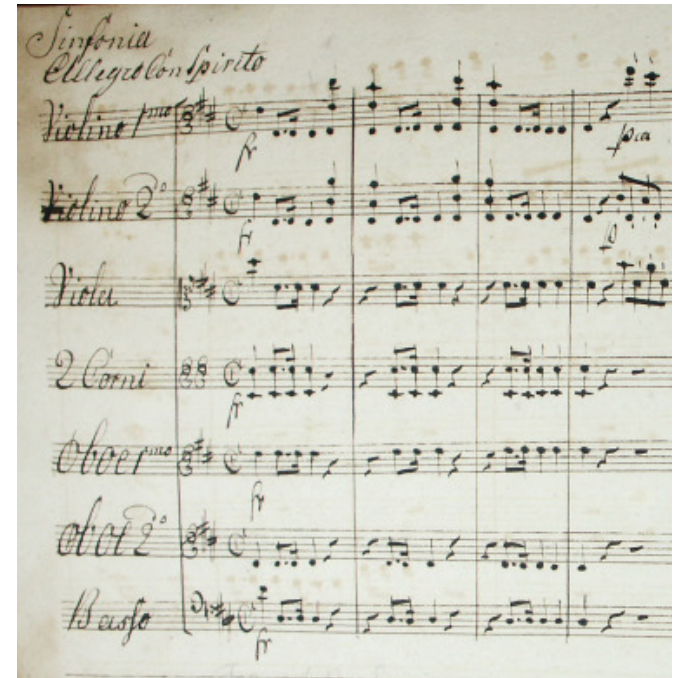 Sinfonia
Allegro Con Spirito
Violino 1mo
fr
pia
Violino 2º
fr
p
Viola
2 Corni
fr
Oboe 1mo
fr
Oboe 2º
Basso
fr